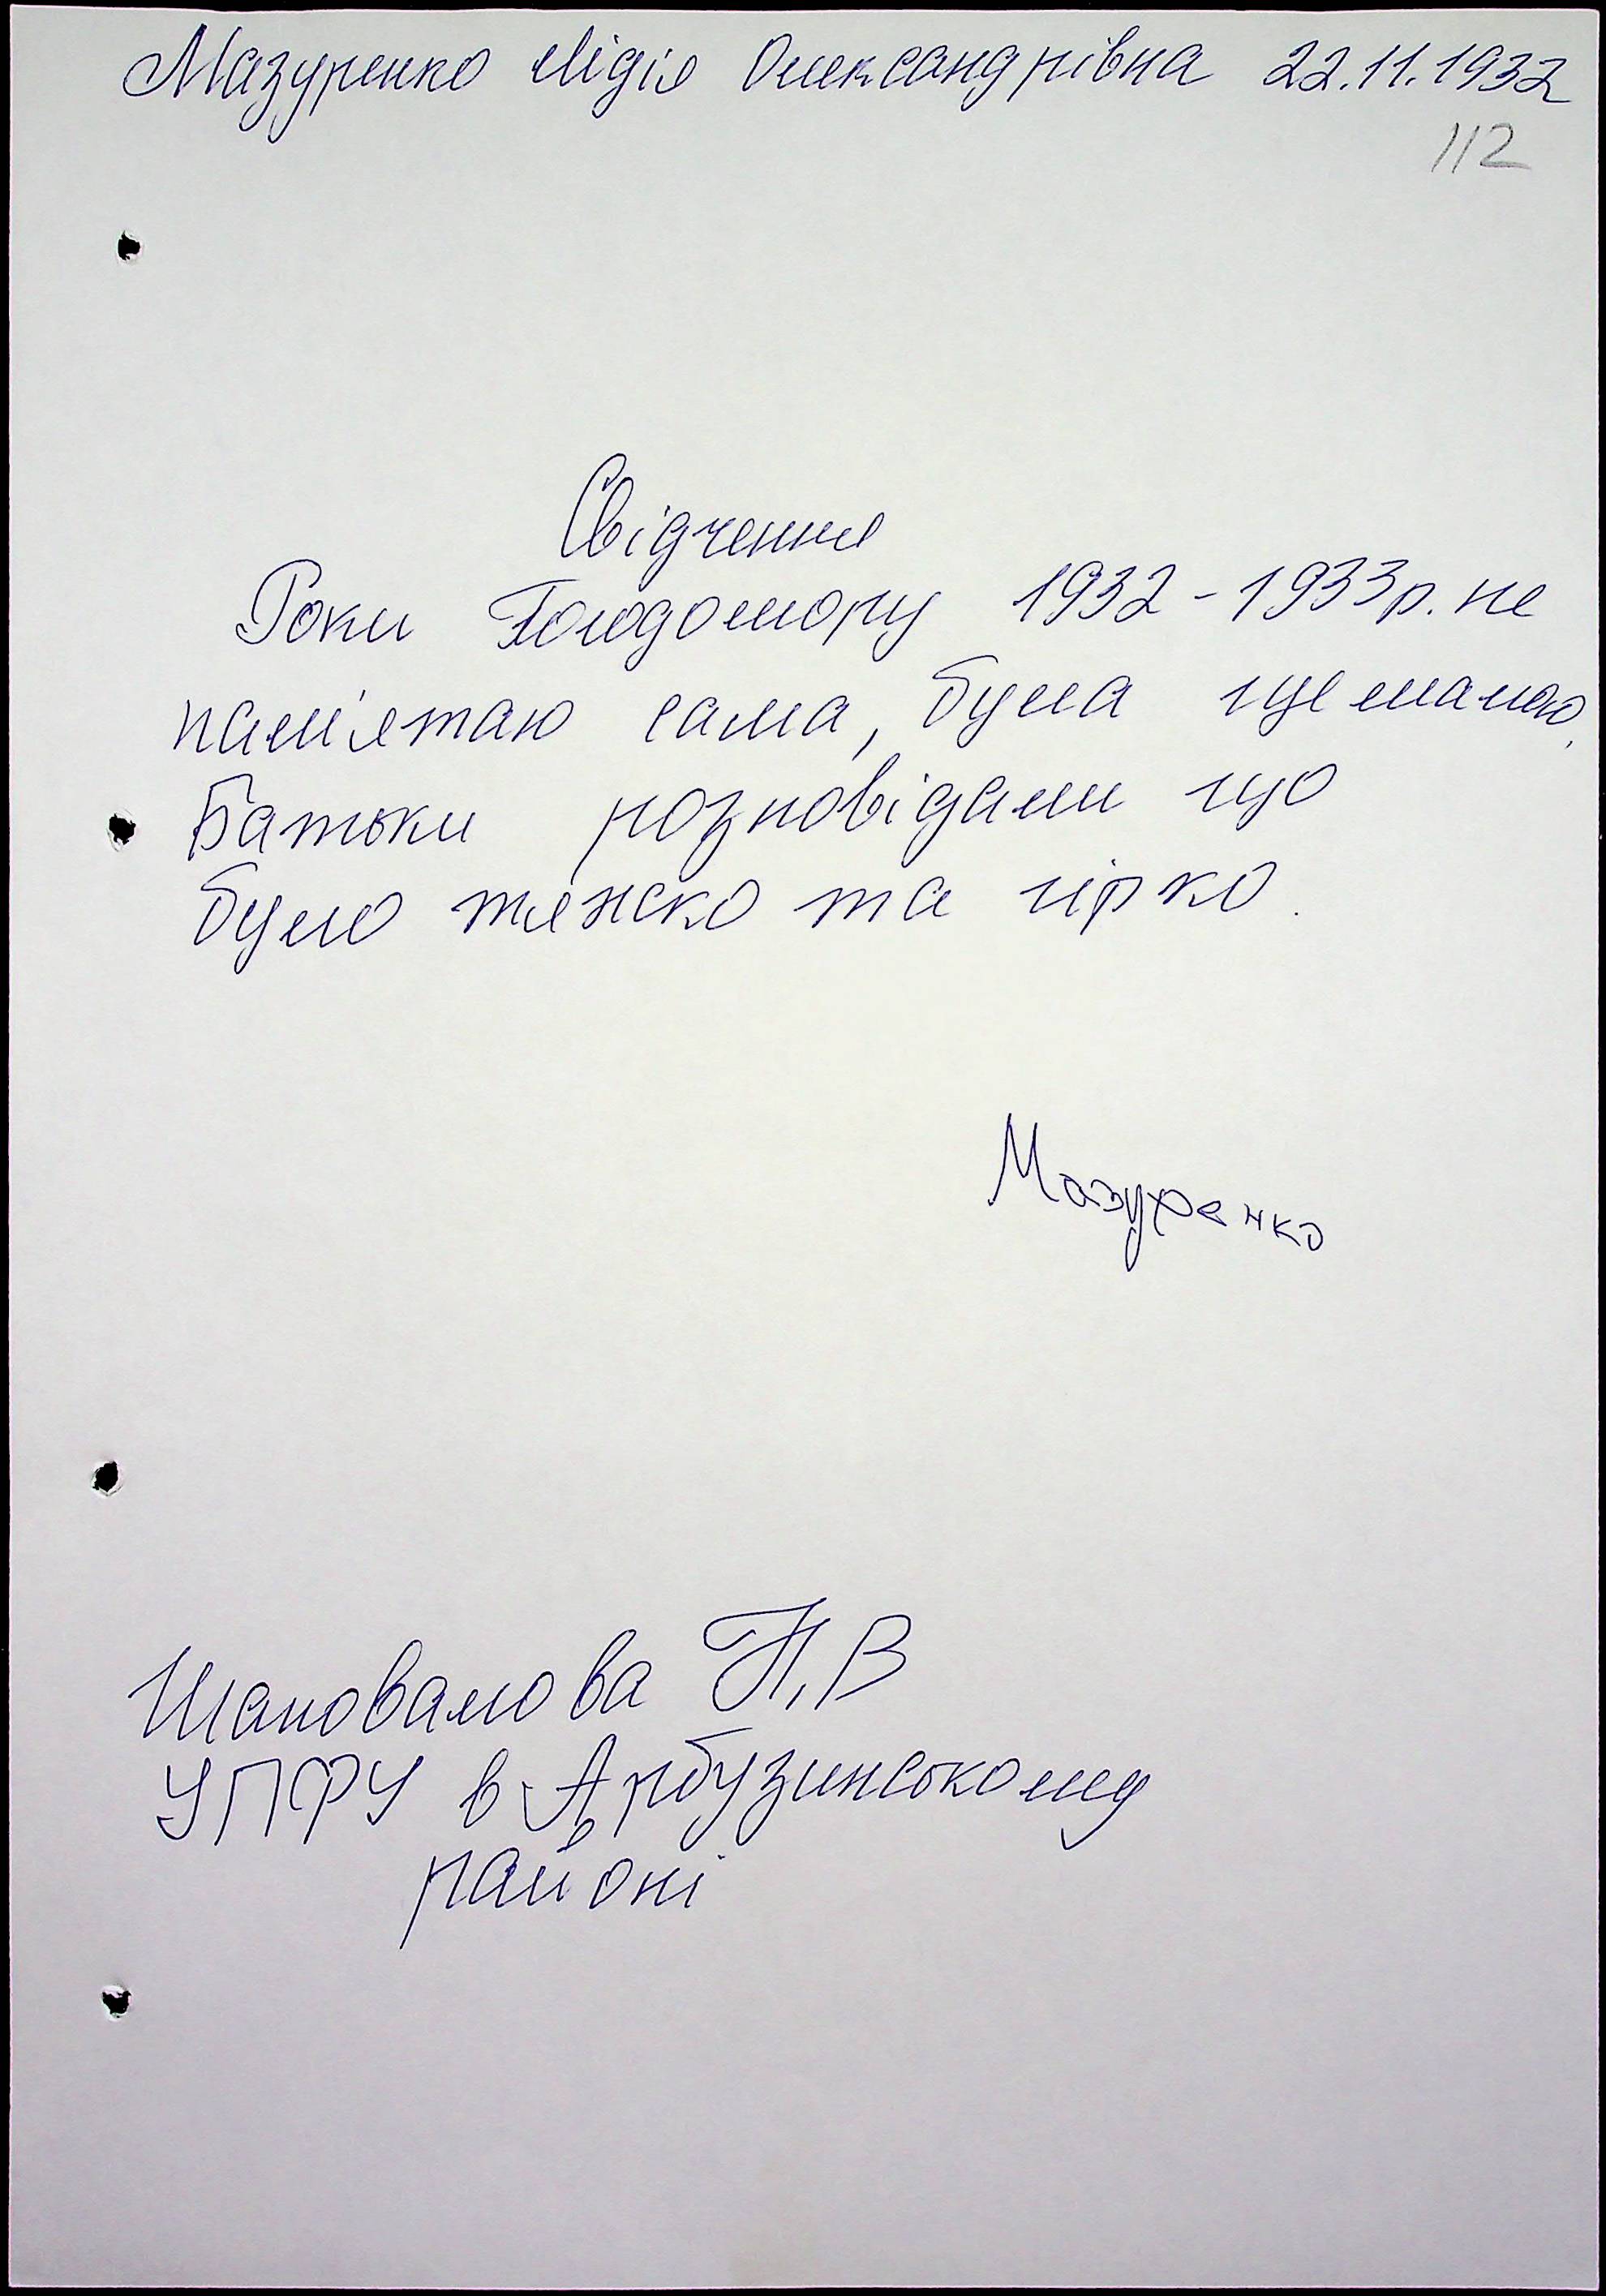 Мазуренко Лідія Олександрівна 22.11.1932
112
Свідчення
Роки Голодомору 1932-1933р. не
пам'ятаю сама, була ще малою,
Батьки розповідали що
було тяжко та гірко.
Мазуренко
Шаповалова Н.В
УПФУ в Арбузинському
районі